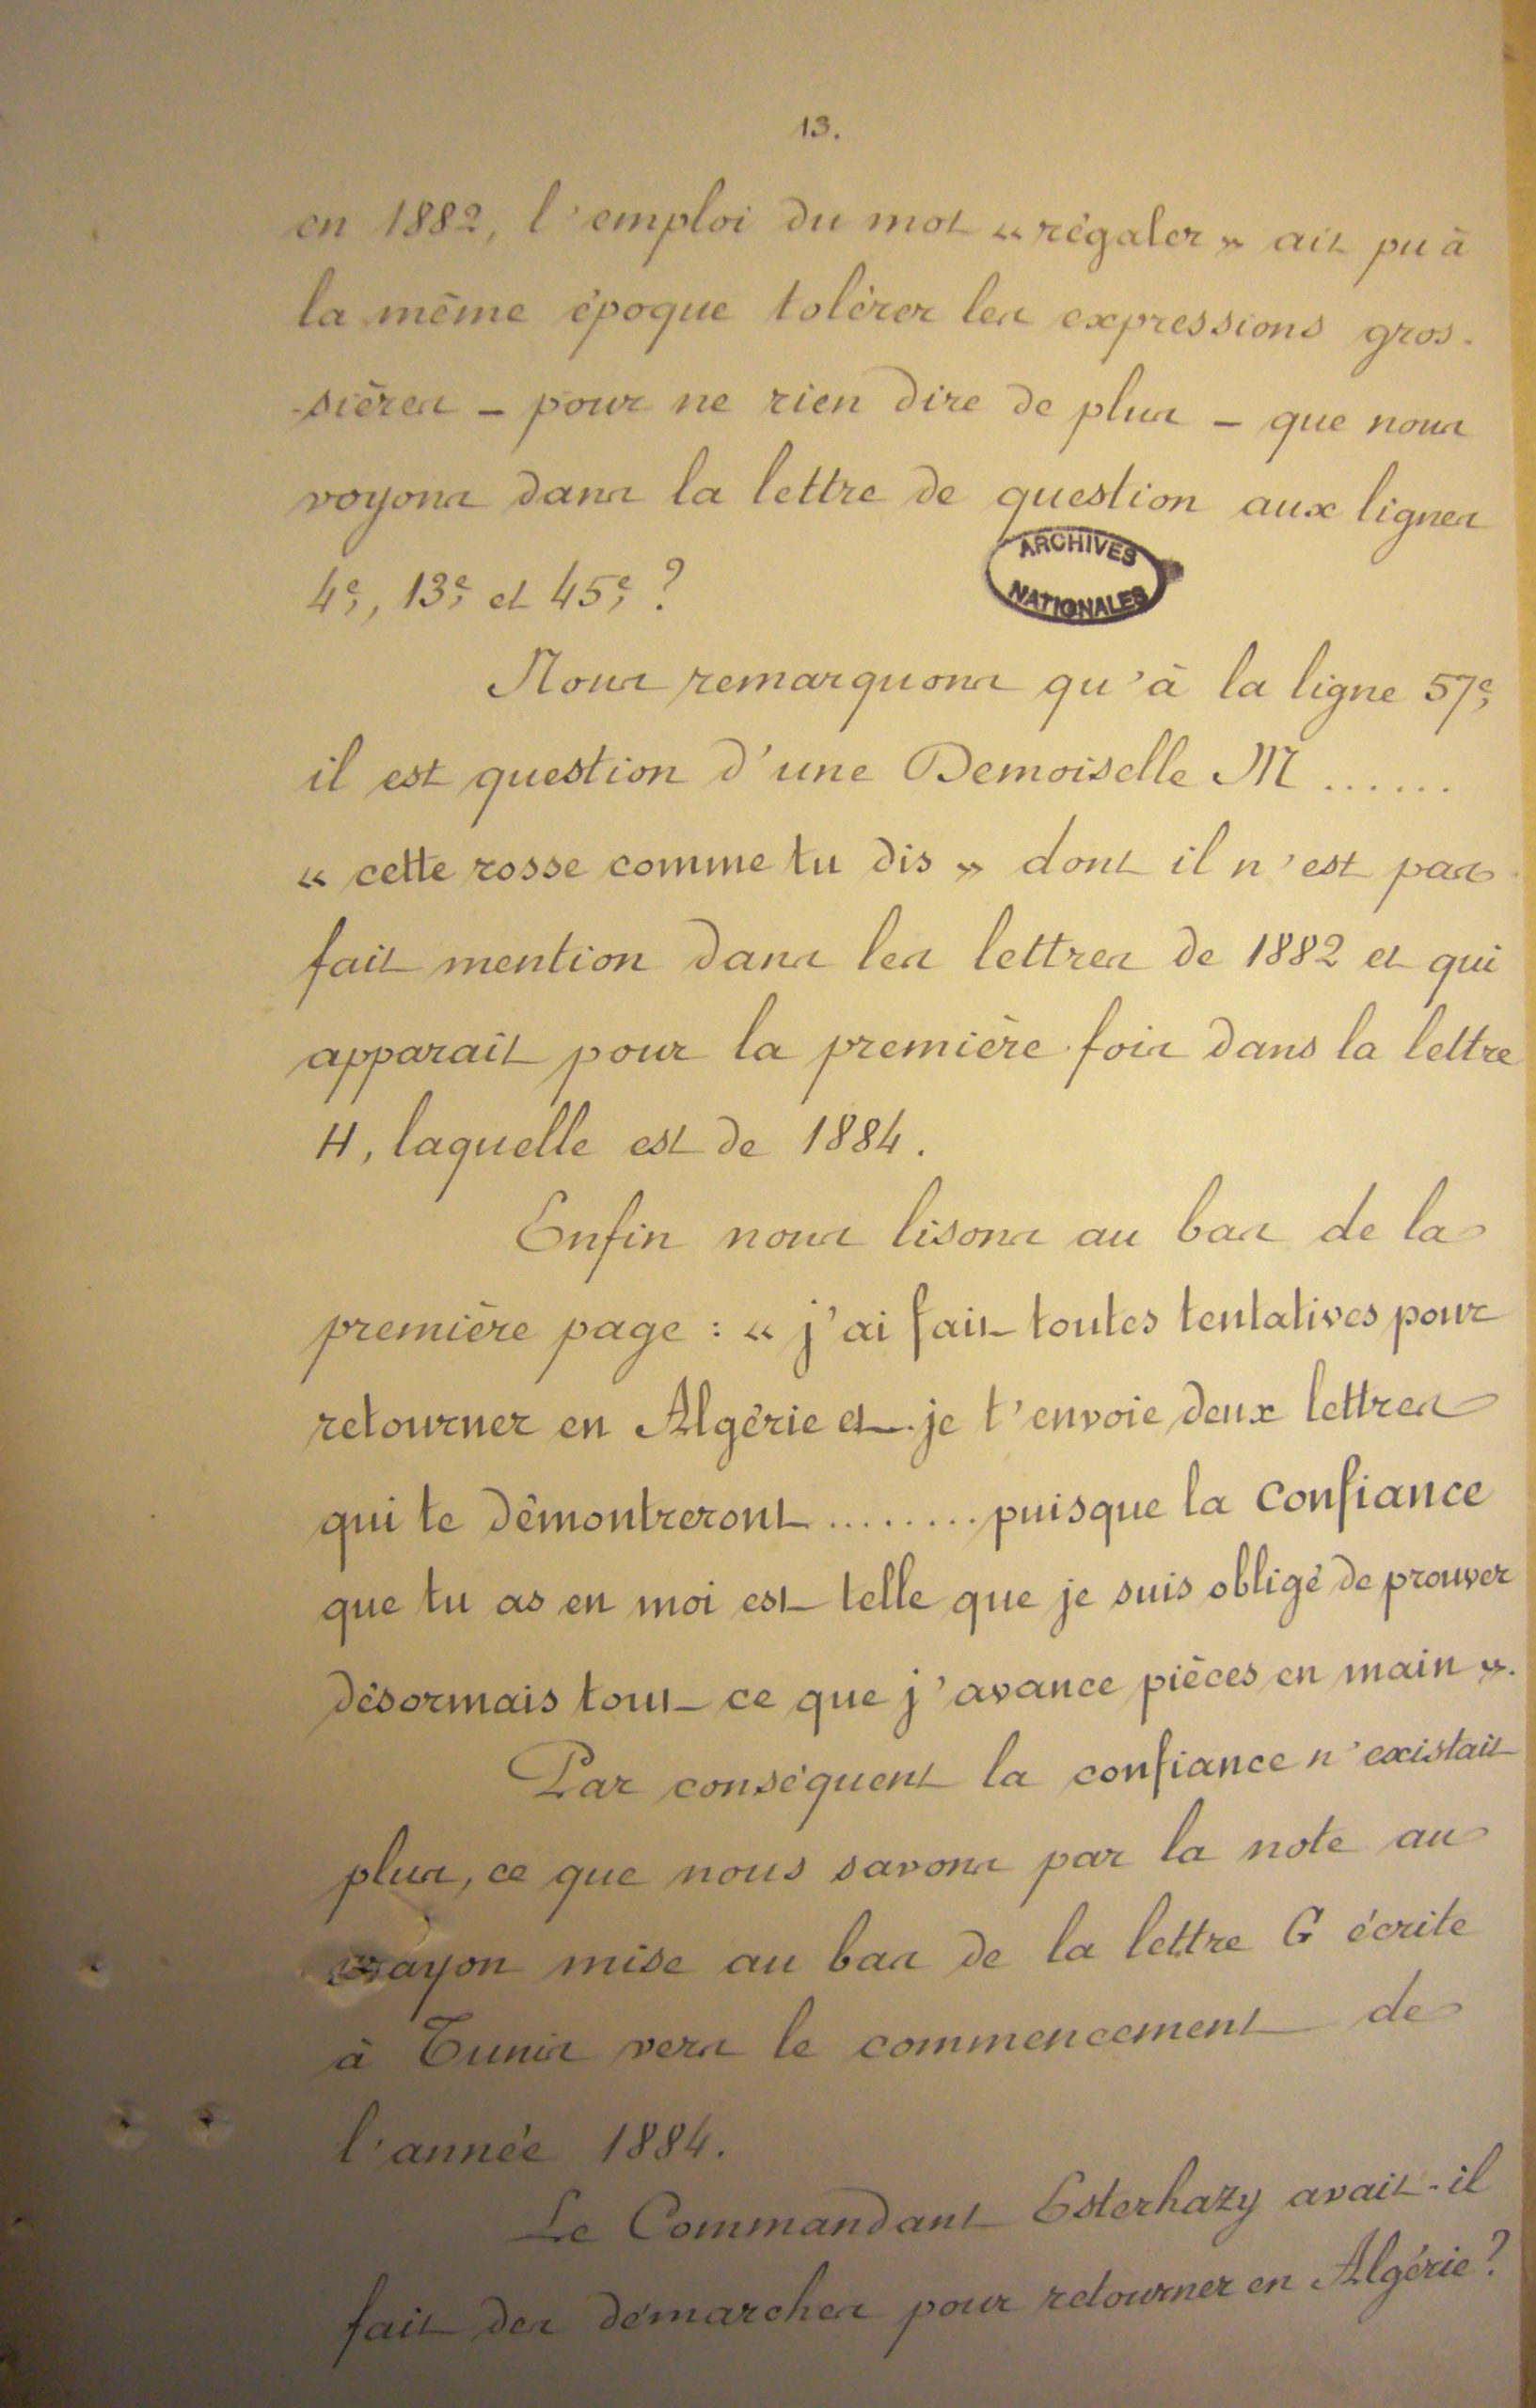 13.
en 1882, l'emploi du mot « régaler » ait pu à
la même époque tolérer les expressions gros-
-sières - pour ne rien dire de plus - que nous
voyons dans la lettre de question aux lignes
4e, 13e et 45e ?
ARCHIVES
NATIONALES
Nous remarquons qu'à la ligne 57e
il est question d'une Demoiselle M......
« cette rosse comme tu dis » dont il n'est pas
fait mention dans les lettres de 1882 et qui
apparaît pour la première fois dans la lettre
H, laquelle est de 1884.
Enfin nous lisons au bas de la
première page : « j'ai fait toutes tentatives pour
retourner en Algérie et je t'envoie deux lettres
qui te démontreront ........ puisque la confiance
que tu as en moi est telle que je suis obligé de prouver
désormais tout ce que j'avance pièces en main ».
Par conséquent la confiance n'existait
plus, ce que nous savons par la note au
crayon mise au bas de la lettre G écrite
à Tunis vers le commencement de
l'année 1884.
Le Commandant Esterhazy avait-il
fait des démarches pour retourner en Algérie ?